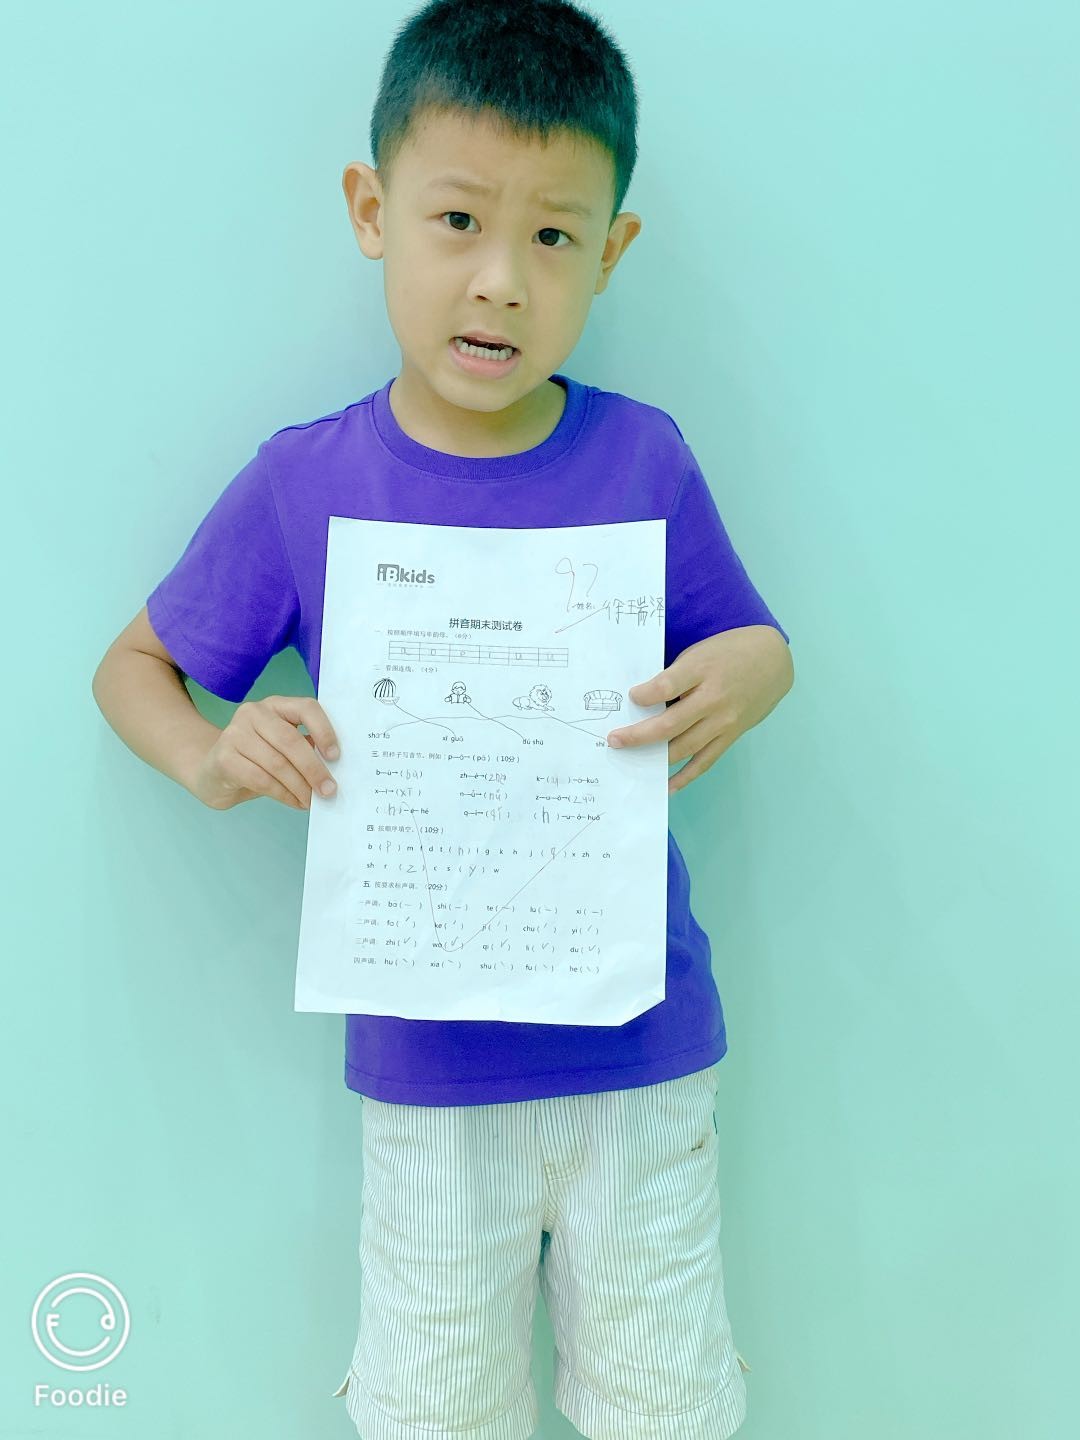 iBkids
97
姓名: 徐瑞泽
拼音期末测试卷
一、按照顺序填写单韵母。(6分)
a o e i u ü
二、看图连线。(4分)
shā fā xī guā dú shū shī
三、照样子写音节。例如:p—ō→(pō)(10分)
k—(u)—ā—kuā
x—ī→(xī) n—ǚ→(nǚ)
q—ī→(qī) (h)—u—ā—huā
四、按顺序填空。(10分)
b (p) m f d t (n) l g k h j (q) x zh ch
sh r (z) c s (y) w
五、按要求标声调。(20分)
一声调: ba(ˉ) shi(ˉ) te(ˉ) lu(ˉ) xi(ˉ)
二声调: fa(ˊ) ke(ˊ) ji(ˊ) chu(ˊ) yi(ˊ)
三声调: zhi(ˇ) wo(ˇ) qi(ˇ) li(ˇ) du(ˇ)
四声调: hu(ˋ) xia(ˋ) shu(ˋ) fu(ˋ) he(ˋ)
Foodie